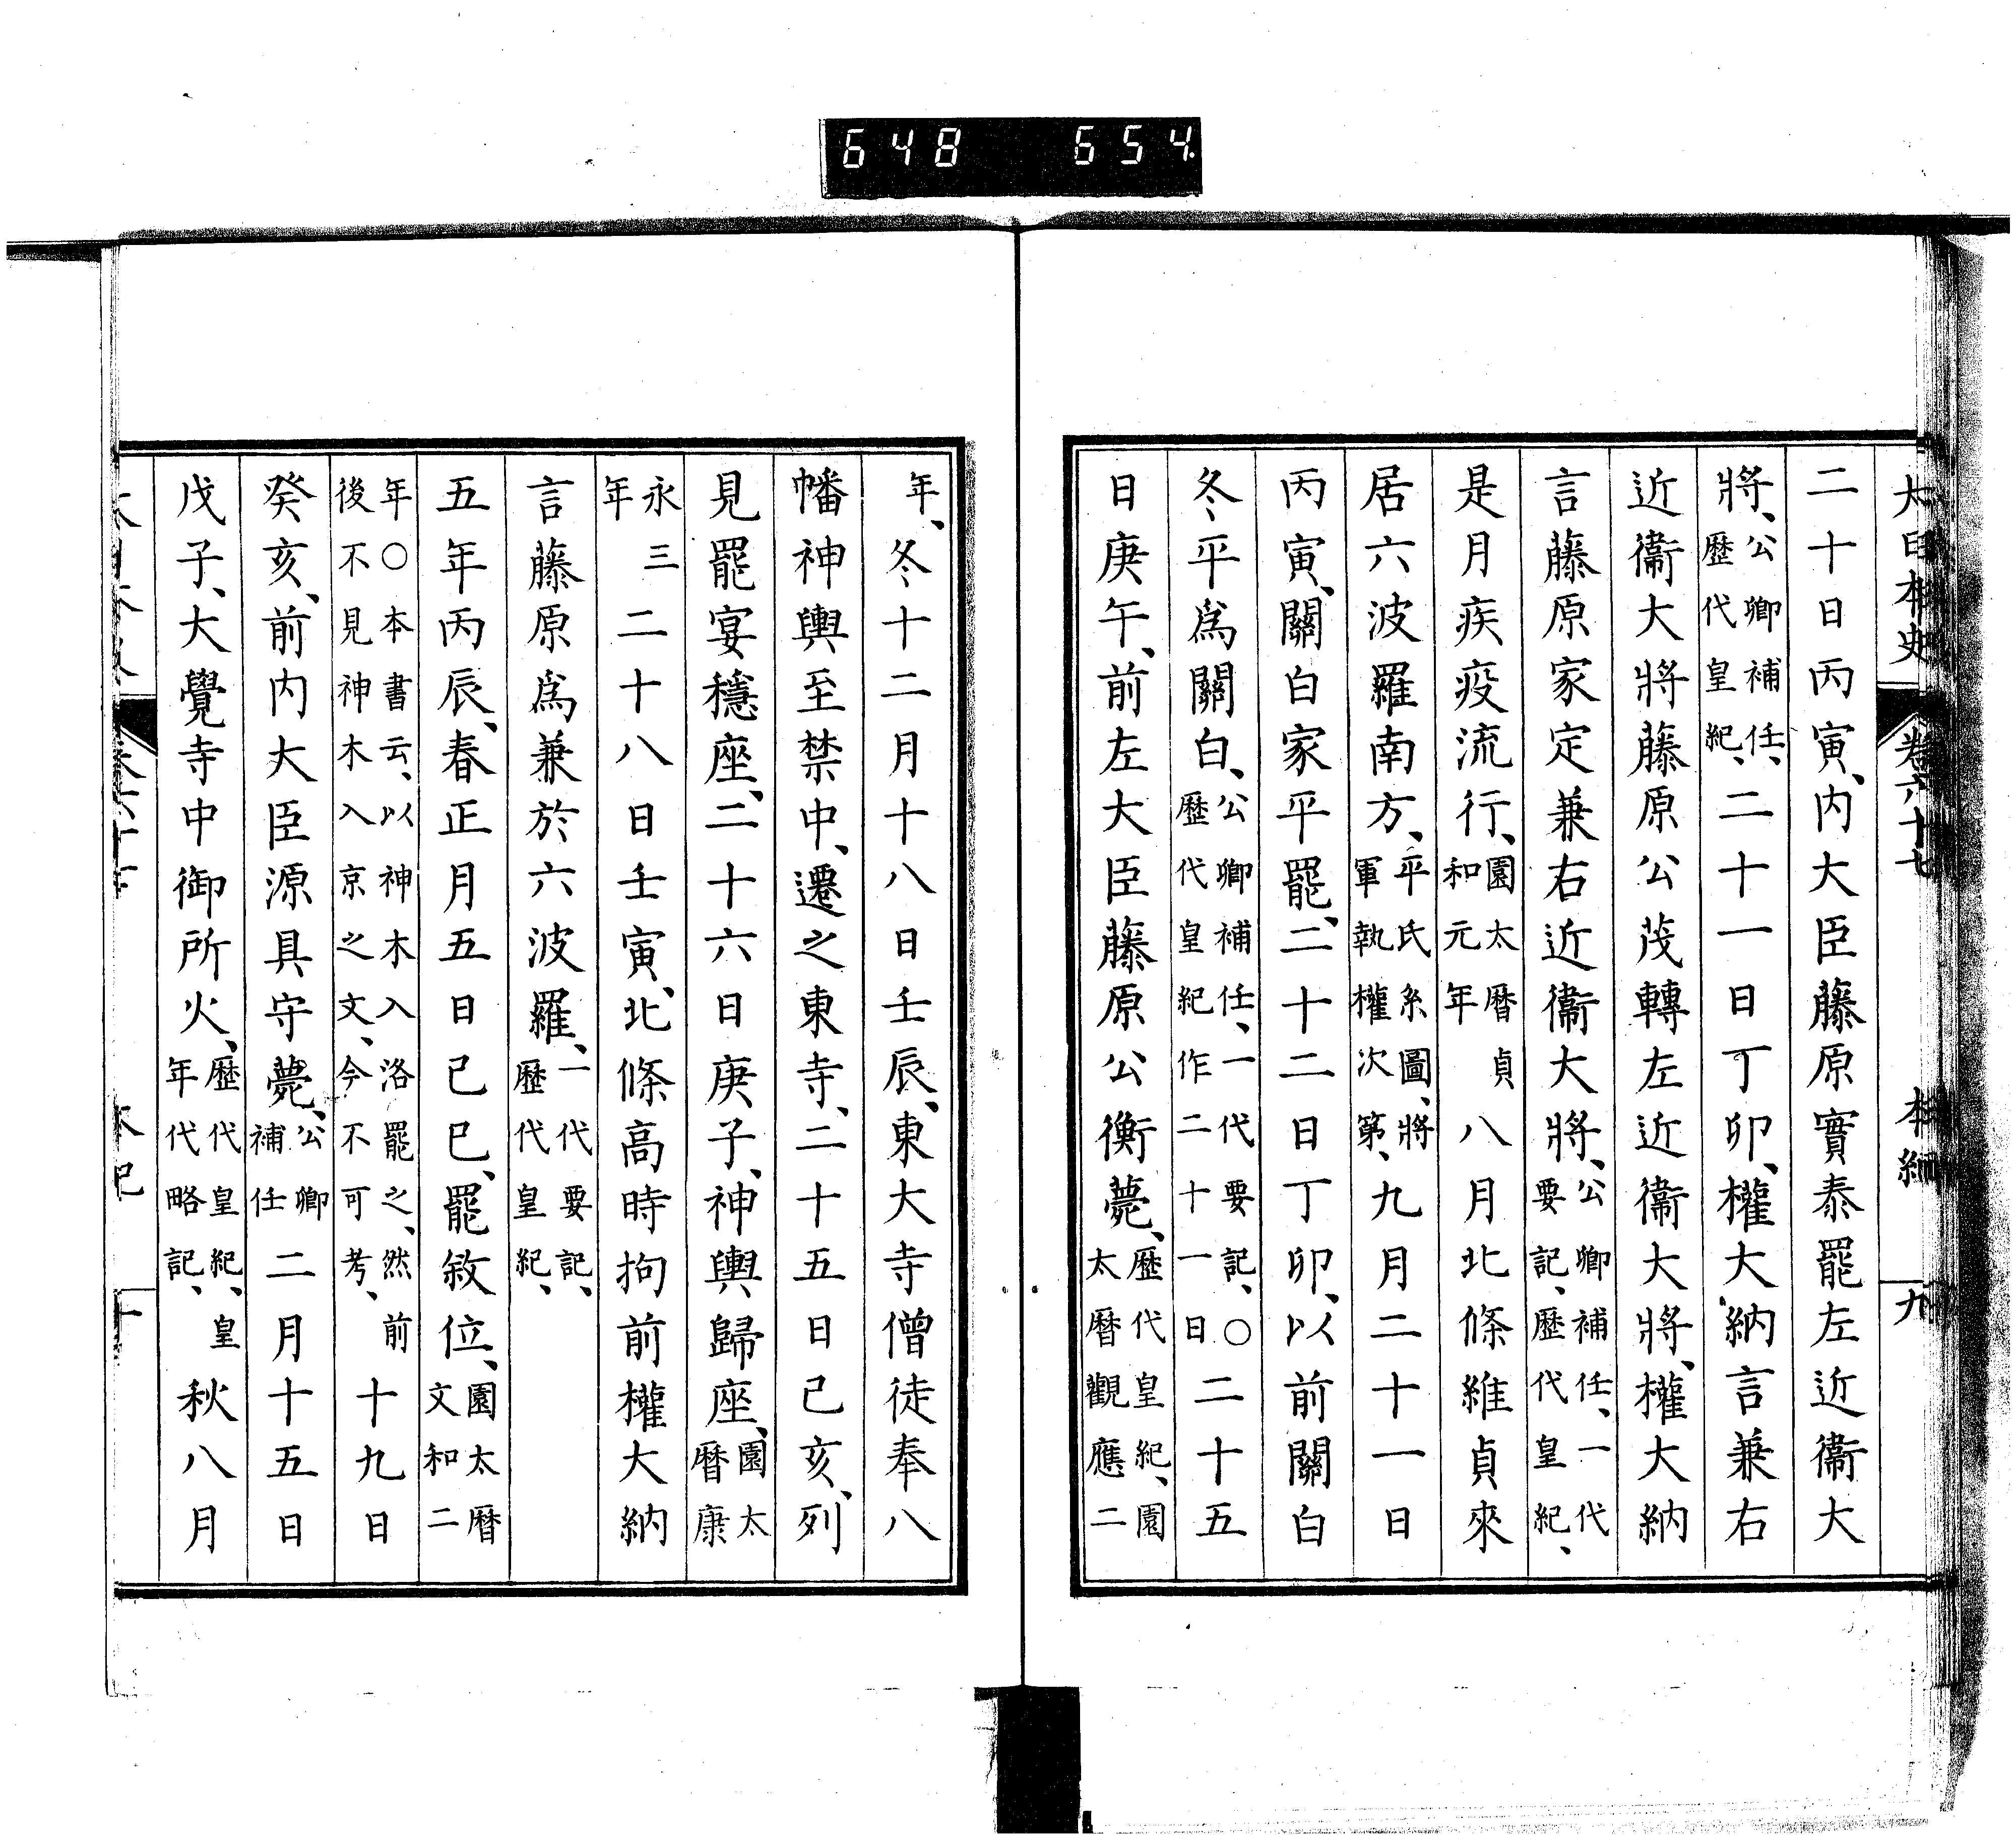 648 654
大日本史 卷六十七 本紀 九
二十日丙寅、内大臣藤原實泰罷左近衞大
將、公卿補任、歷代皇紀、二十一日丁卯、權大納言兼右
近衞大將藤原公茂轉左近衞大將、權大納
言藤原家定兼右近衞大將、公卿補任、一代要記、歷代皇紀、
是月疾疫流行、園太曆貞和元年八月北條維貞來
居六波羅南方、平氏系圖、將軍執權次第、九月二十一日
丙寅、關白家平罷、二十二日丁卯、以前關白
冬平爲關白、公卿補任、一代要記、○歷代皇紀作二十一日二十五
日庚午、前左大臣藤原公衡薨、歷代皇紀、園太曆觀應二
年、冬十二月十八日壬辰、東大寺僧徒奉八
幡神輿至禁中、遷之東寺、二十五日己亥、列
見罷宴穩座、二十六日庚子、神輿歸座、園太曆康
永三年二十八日壬寅、北條高時拘前權大納
言藤原爲兼於六波羅、一代要記、歷代皇紀、
五年丙辰、春正月五日己巳、罷敘位、園太曆文和二
年○本書云、以神木入洛罷之、然前後不見神木入京之文、今不可考、十九日
癸亥、前内大臣源具守薨、公卿補任二月十五日
戊子、大覺寺中御所火、歷代皇紀、皇年代略記、秋八月